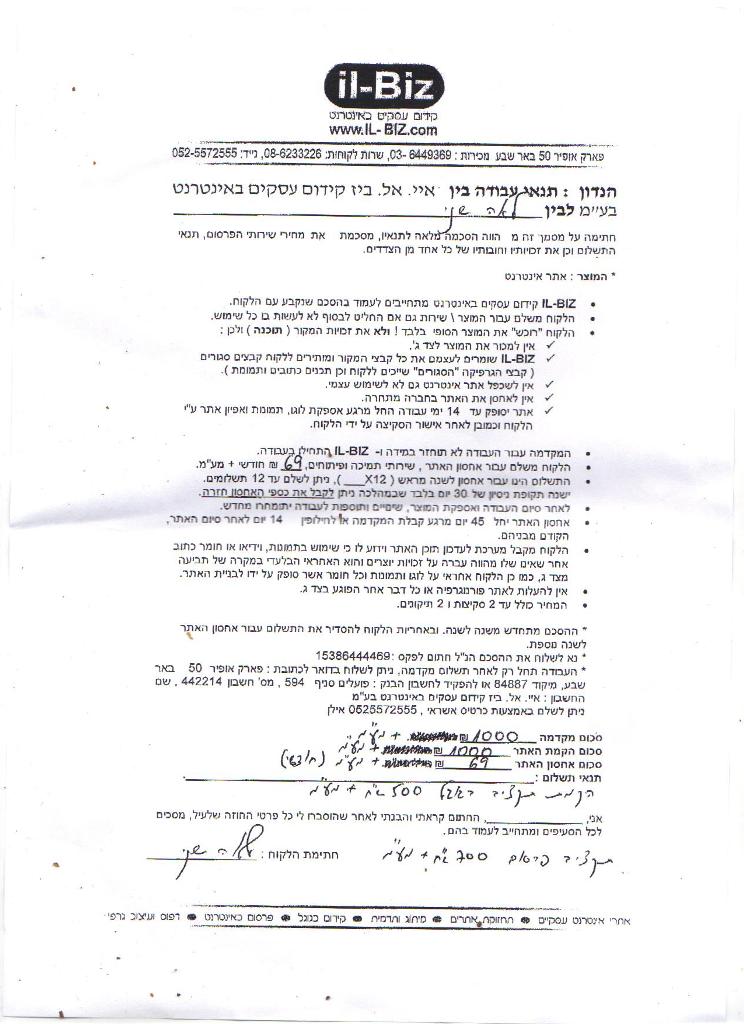 il-Biz
קידום עסקים באינטרנט
www.IL-BIZ.com
פארק אופיר 50 באר שבע מכירות : 03-6449369, שרות לקוחות: 08-6233226, נייד: 052-5572555
הנדון : תנאי עבודה בין איי. אל. ביז קידום עסקים באינטרנט
בע"מ לבין לאה שני
חתימה על מסמך זה מ הווה הסכמה מלאה לתנאיו, מסכמת את מחירי שירותי הפרסום, תנאי
התשלום וכן את זכויותיו וחובותיו של כל אחד מן הצדדים.
* המוצר : אתר אינטרנט
• IL-BIZ קידום עסקים באינטרנט מתחייבים לעמוד בהסכם שנקבע עם הלקוח.
• הלקוח משלם עבור המוצר \ שירות גם אם החליט לבסוף לא לעשות בו כל שימוש.
• הלקוח "רוכש" את המוצר הסופי בלבד ! ולא את זכויות המקור ( תוכנה ) ולכן :
✓ אין למכור את המוצר לצד ג'.
✓ IL-BIZ שומרים לעצמם את כל קבצי המקור ומתירים ללקוח קבצים סגורים
( קבצי הגרפיקה "הסגורים" שייכים ללקוח וכן תכנים כתובים ותמונות ).
✓ אין לשכפל אתר אינטרנט גם לא לשימוש עצמי.
✓ אין לאחסן את האתר בחברה מתחרה.
✓ אתר יסופק עד 14 ימי עבודה החל מרגע אספקת לוגו, תמונות ואפיון אתר ע"י
הלקוח וכמובן לאחר אישור הסקיצה על ידי הלקוח.
• המקדמה עבור העבודה לא תוחזר במידה ו- IL-BIZ התחילו בעבודה.
• הלקוח משלם עבור אחסון האתר , שירותי תמיכה ופיתוחים, 69 ₪ חודשי + מע"מ.
• התשלום הינו עבור אחסון לשנה מראש ( X12___ ), ניתן לשלם עד 12 תשלומים.
ישנה תקופת ניסיון של 30 יום בלבד שבמהלכה ניתן לקבל את כספי האחסון חזרה.
• לאחר סיום העבודה ואספקת המוצר, שינויים ותוספות לעבודה יתומחרו מחדש.
• אחסון האתר יחל 45 יום מרגע קבלת המקדמה או לחילופין 14 יום לאחר סיום האתר,
הקודם מבניהם.
• הלקוח מקבל מערכת לעדכון תוכן האתר וידוע לו כי שימוש בתמונות, וידיאו או חומר כתוב
אחר שאינו שלו מהווה עברה על זכויות יוצרים והוא האחראי הבלעדי במקרה של תביעה
מצד ג, כמו כן הלקוח אחראי על לוגו ותמונות וכל חומר אשר סופק על ידו לבניית האתר.
• אין להעלות לאתר פורנוגרפיה או כל דבר אחר הפוגע בצד ג.
• המחיר כולל עד 2 סקיצות ו 2 תיקונים.
* ההסכם מתחדש משנה לשנה. ובאחריות הלקוח להסדיר את התשלום עבור אחסון האתר
לשנה נוספת.
* נא לשלוח את ההסכם הנ"ל חתום לפקס :15386444469
* העבודה תחל רק לאחר תשלום מקדמה, ניתן לשלוח בדואר לכתובת : פארק אופיר 50 באר
שבע, מיקוד 84887 או להפקיד לחשבון הבנק : פועלים סניף 594 , מס' חשבון 442214 , שם
החשבון : איי. אל. ביז קידום עסקים באינטרנט בע"מ
ניתן לשלם באמצעות כרטיס אשראי , 0526572555 אילן
סכום מקדמה 1000 ₪ + מע"מ
סכום הקמת האתר 1000 ₪ + מע"מ
סכום אחסון האתר 69 + מע"מ (חודשי)
תנאי תשלום :
הקמת תקציב בגוגל 500 ש"ח + מע"מ
אני, ____________, החתום קראתי והבנתי לאחר שהוסברו לי כל פרטי החוזה שלעיל, מסכים
לכל הסעיפים ומתחייב לעמוד בהם.
תקציב פרסום 700 ש"ח + מע"מ
חתימת הלקוח : לאה שני
אתרי אינטרנט עסקיים ● תחזוקת אתרים ● מיתוג ותדמית ● קידום בגוגל ● פרסום באינטרנט ● דפוס ועיצוב גרפי